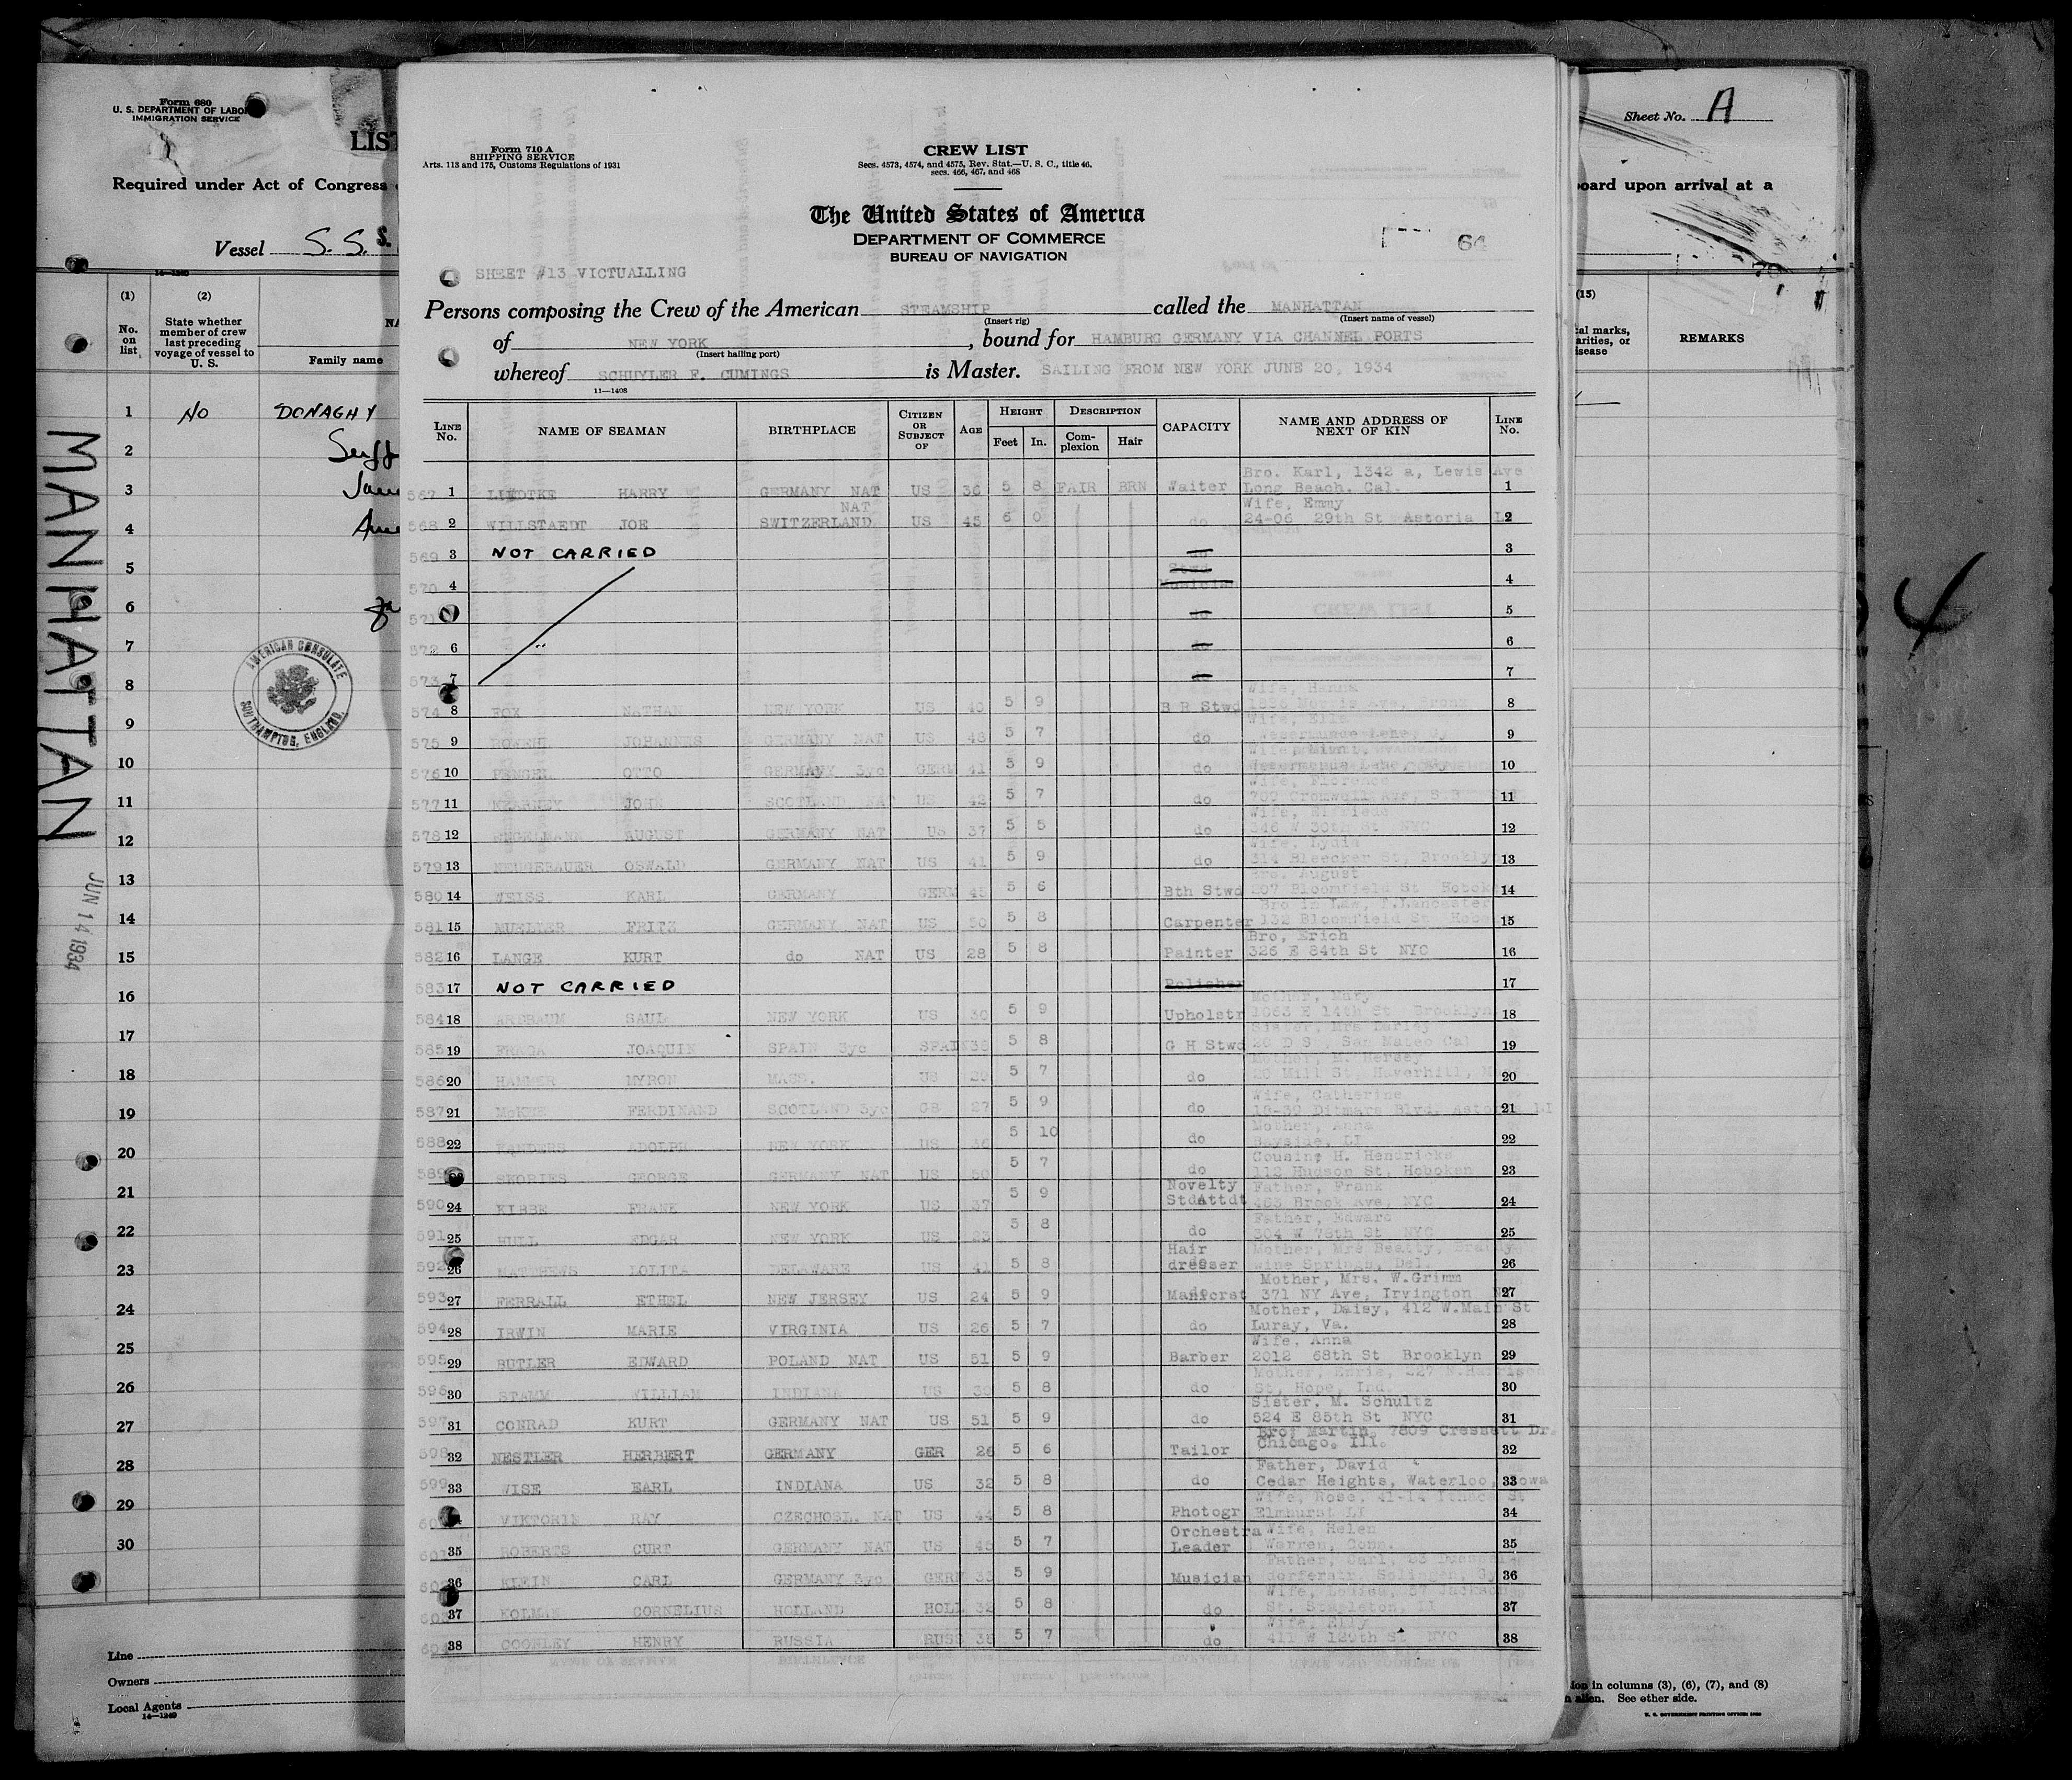 Form 680
U. S. DEPARTMENT OF LABOR
IMMIGRATION SERVICE
LIST
Required under Act of Congress
Vessel S. S. S.
14—1240
(1) (2)
No. on list
State whether member of crew last preceding voyage of vessel to U. S.
NA
Family name
1 NO DONAGHY
2
3
4
5
6
7
8
9
10
11
12
13
14
15
16
17
18
19
20
21
22
23
24
25
26
27
28
29
30
AMERICAN CONSULATE
SOUTHAMPTON, ENGLAND.
MANHATTAN
JUN 14 1934
Line
Owners
Local Agents
14—1240
Form 710 A
SHIPPING SERVICE
Arts. 113 and 175, Customs Regulations of 1931
CREW LIST
Secs. 4573, 4574, and 4575, Rev. Stat.—U. S. C., title 46,
secs. 466, 467, and 468
The United States of America
DEPARTMENT OF COMMERCE
BUREAU OF NAVIGATION
64
SHEET #13 VICTUALLING
Persons composing the Crew of the American STEAMSHIP called the MANHATTAN
(Insert rig) (Insert name of vessel)
of NEW YORK, bound for HAMBURG GERMANY VIA CHANNEL PORTS
(Insert hailing port)
whereof SCHUYLER F. CUMINGS is Master. SAILING FROM NEW YORK JUNE 20, 1934
11—1408
LINE No. NAME OF SEAMAN BIRTHPLACE CITIZEN OR SUBJECT OF AGE HEIGHT Feet In. DESCRIPTION Complexion Hair CAPACITY NAME AND ADDRESS OF NEXT OF KIN LINE No.
Bro. Karl, 1342 a, Lewis Ave
567 1 LINDTKE HARRY GERMANY NAT US 36 5 8 FAIR BRN Waiter Long Beach. Cal. 1
NAT Wife, Emmy
568 2 WILLSTAEDT JOE SWITZERLAND US 45 6 0 do 24-06 29th St Astoria LI 2
569 3 NOT CARRIED do 3
Stwd
570 4 Musician 4
571 5 do 5
572 6 " do 6
573 7 do 7
Wife, Hanna
574 8 FOX NATHAN NEW YORK US 40 5 9 B R Stwd 1886 Morris Ave, Bronx 8
Wife, Ella
575 9 JOHANNES GERMANY NAT US 43 5 7 do Wesermunde Lehe, Gy 9
Wife,
576 10 OTTO GERMANY 3yc GERM 41 5 9 do Wesermunde Lehe, Gy 10
Wife, Florence
577 11 KEARNEY JOHN SCOTLAND NAT US 42 5 7 do 700 Cromwell Ave, S.B. 11
Wife, Elfriede
578 12 ENGELMANN AUGUST GERMANY NAT US 37 5 5 do 346 W 30th St NYC 12
Wife, Lydia
579 13 NEUGEBAUER OSWALD GERMANY NAT US 41 5 9 do 314 Bleecker St, Brooklyn 13
Bro. August
580 14 WEISS KARL GERMANY GERM 45 5 6 Bth Stwd 207 Bloomfield St Hoboken 14
Bro in Law, T.Lancaster
581 15 MUELLER FRITZ GERMANY NAT US 50 5 8 Carpenter 132 Bloomfield St Hobo 15
Bro, Erich
582 16 LANGE KURT do NAT US 28 5 8 Painter 326 E 84th St NYC 16
583 17 NOT CARRIED Polisher 17
Mother, Mary
584 18 ARTBAUM SAUL NEW YORK US 30 5 9 Upholstr 1083 E 14th St Brooklyn 18
Sister, Mrs Darley
585 19 FRAGA JOAQUIN SPAIN 3yc SPAIN 38 5 8 G H Stwd 20 D St San Mateo Cal 19
Mother, M. Hersey
586 20 HAMMER MYRON MASS. US 29 5 7 do 20 Mill St, Haverhill, 20
Wife, Catherine
587 21 McKEE FERDINAND SCOTLAND 3yc GB 27 5 9 do 18-39 Ditmars Blvd. Astoria LI 21
Mother, Anna
588 22 SANDERS ADOLPH NEW YORK US 36 5 10 do Bayside, LI 22
Cousin, H. Hendricks
589 23 SKORIES GEORGE GERMANY NAT US 50 5 7 do 112 Hudson St, Hoboken 23
Novelty Father, Frank
590 24 KIBBE FRANK NEW YORK US 37 5 9 StdAttdt 463 Brook Ave, NYC 24
Father, Edward
591 25 HULL EDGAR NEW YORK US 23 5 8 do 304 W 78th St NYC 25
Hair Mother, Mrs Beatty, Brandy
592 26 MATTHEWS LOLITA DELAWARE US 41 5 8 dresser wine Springs, Del. 26
Mother, Mrs. W.Grimm
593 27 FERRALL ETHEL NEW JERSEY US 24 5 9 Manicrst 371 NY Ave, Irvington NJ 27
Mother, Daisy, 412 W.Main St
594 28 IRWIN MARIE VIRGINIA US 26 5 7 do Luray, Va. 28
Wife, Anna
595 29 BUTLER EDWARD POLAND NAT US 51 5 9 Barber 2012 68th St Brooklyn 29
Mother, 227 N.Harrison
596 30 STAMM WILLIAM INDIANA US 39 5 8 do St, Hope, Ind. 30
Sister, M. Schultz
597 31 CONRAD KURT GERMANY NAT US 51 5 9 do 524 E 85th St NYC 31
Bro, Martin, 7809 Cressett Dr.
598 32 NESTLER HERBERT GERMANY GER 26 5 6 Tailor Chicago, Ill. 32
Father, David
599 33 WISE EARL INDIANA US 32 5 8 do Cedar Heights, Waterloo, Iowa 33
Wife, Rose, 41-14 Ithaca St
600 34 VIKTORIN RAY CZECHOSL. NAT US 44 5 8 Photogr Elmhurst LI 34
Orchestra Wife, Helen
601 35 ROBERTS CURT GERMANY NAT US 45 5 7 Leader Warren, Conn. 35
Father, Carl, 83 Dussel
602 36 KLEIN CARL GERMANY 3yc GERM 33 5 9 Musician dorferstr, Solingen, Gy 36
Wife, Louise, 57 Jackson
603 37 KOLMAN CORNELIUS HOLLAND HOLL 32 5 8 do St. Stapleton, SI 37
Wife,
604 38 COONLEY HENRY RUSSIA RUSS 38 5 7 do 411 W 129th St NYC 38
Sheet No. A
board upon arrival at a
(15)
REMARKS
4
ion in columns (3), (6), (7), and (8)
n alien. See other side.
U. S. GOVERNMENT PRINTING OFFICE